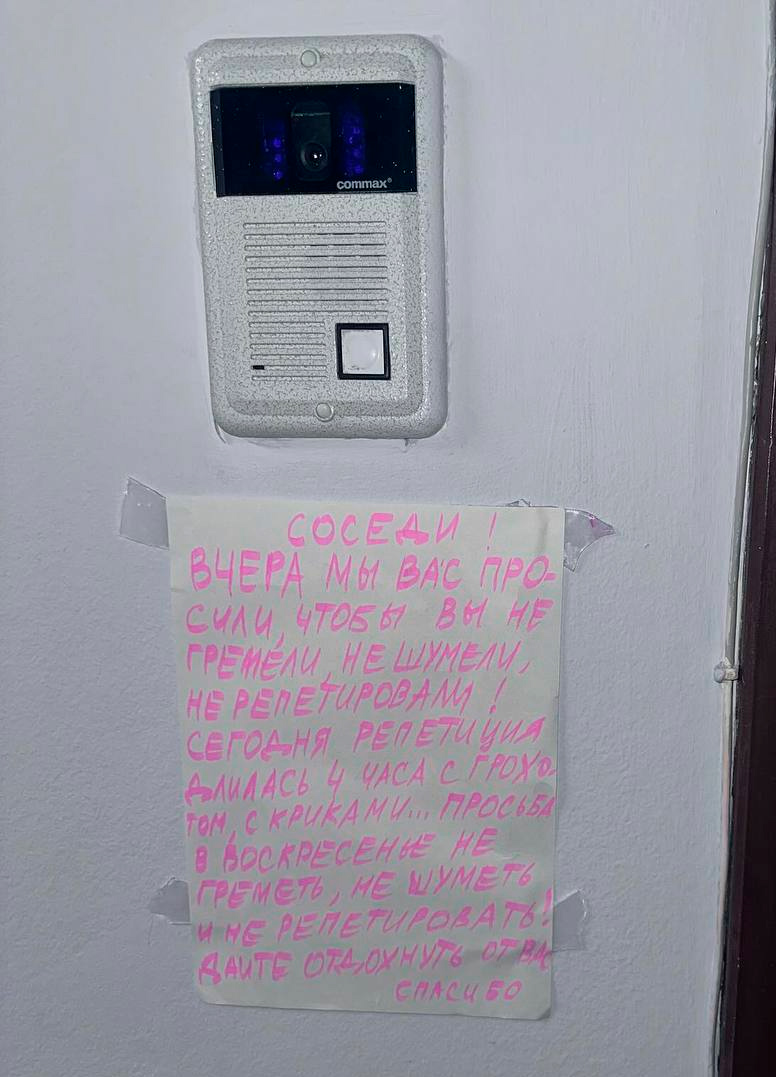 commax®
СОСЕДИ !
ВЧЕРА МЫ ВАС ПРО-
СИЛИ, ЧТОБЫ ВЫ НЕ
ГРЕМЕЛИ, НЕ ШУМЕЛИ,
НЕ РЕПЕТИРОВАЛИ !
СЕГОДНЯ РЕПЕТИЦИЯ
ДЛИЛАСЬ 4 ЧАСА С ГРОХО-
ТОМ, С КРИКАМИ... ПРОСЬБА
В ВОСКРЕСЕНЬЕ НЕ
ГРЕМЕТЬ, НЕ ШУМЕТЬ
И НЕ РЕПЕТИРОВАТЬ!
ДАЙТЕ ОТДОХНУТЬ ОТ ВАС
СПАСИБО